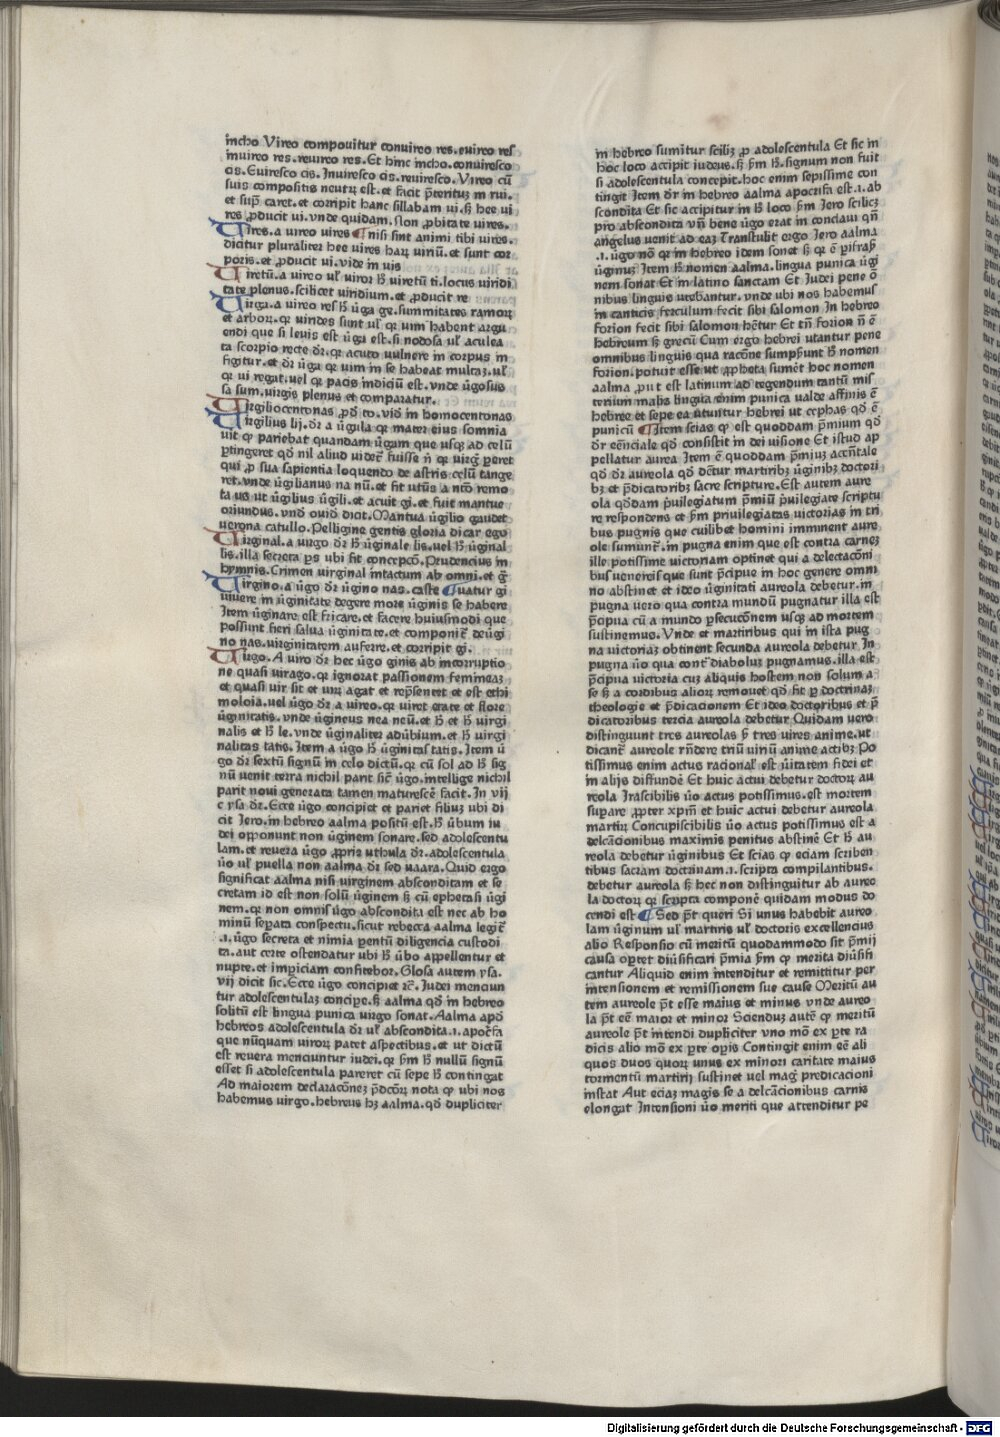 incho Vireo componitur conuireo res.euireo res
inuireo res.reuireo res.Et hinc incho.conuiresco
cis.Euiresco cis.Inuiresco cis.reuiresco.Vireo cū
suis compositis neutrꝫ est.et facit p̄terituꝫ in rui.
et supī caret.et corripit hanc sillabam ui.sꝫ hec ui
res ꝓducit ui.vnde quidam.Non ꝓbitate uires.
Vires.a uireo uires ¶nisi sint animi tibi uires.
dicitur pluraliter hee uires harꝫ uiriū.et sunt cor
poris.et ꝓducit ui.vide in uis
Viretū.a uireo ul' uiror hͦ viretū ti.locus uiridi
tate plenus.scilicet uiridium.et ꝓducit re
Virga.a uireo res hͨ ūga ge.summitates ramorꝫ
et arborꝫ.qr uirides sunt ul' qr uim habent argu
endi que si leuis est ūga est.si nodosa ul' aculea
ta scorpio recte dr̄.qr acuto uulnere in corpus in
figitur.et dr̄ ūga qr uim in se habeat multaꝫ.ul'
qr ui regat.uel qr pacis indiciū est.vnde ūgosus
sa sum.uirgis plenus et comparatur.
Virgiliocentonas ꝓdͦ to.vidͤ in homocentonas
Virgilius lij.dr̄ a ūgula qr mater eius somnia
uit qͥ pariebat quandam ūgam que usqꝫ ad celū
ꝑtingeret qd̄ nil aliud uideri fuisse ni qr uirgꝫ pareret
qui ꝓ sua sapientia loquendo de astris celū tange
ret.vnde ūgilianus na nū.et fit utūs a ntō remo
ta us ut ūgilius ūgili.et acuit gi.et fuit mantue
oriundus.vnd̄ ouid̄ dicit.Mantua ūgilio gaudet
uerona catullo.Pelligine gentis gloria dicar ego
Virginal.a uirgo dr̄ hͨ ūginale lis.uel hͨ ūginal
lis.illa secreta ꝑs ubi fit concepcō.Prudencius in
hymnis.Crimen uirginal intactum ab omni.et gͥ
Virgino.a ūgo dr̄ ūgino nas.caste ¶uatur gi
uiuere in ūginitate degere more ūginis se habere
Item ūginare est fricare.et facere huiusmodi que
possunt fieri salua ūginitate.et componit̄ deūgi
no nas.uirginitatem auferre.et corripit gi.
Virgo.A uiro dr̄ hec ūgo ginis ab incorruptio
ne quasi uirago.qr ignorat passionem femineaꝫ
et quasi uir sit et uirꝫ agat et rep̄senret et est ethi
moloia.uel ūgo dr̄ a uireo.qr uiret etate et flore
ūginitatis.vnde ūgineus nea neū.et hͨ et hͨ uirgi
nalis et hͨ le.vnde ūginaliter adūbium.et hͨ uirgi
nalitas tatis.Item a ūgo hͨ ūginitas tatis.Item ū
go dr̄ sextū signū in celo dictū.qr cū sol ad hͨ sig
nū uenit terra nichil parit sic̄ ūgo.intellige nichil
parit noui generata tamen maturescē facit.In vij
c ysa dr̄.Ecce ūgo concipiet et pariet filiuꝫ ubi di
cit Jero.in hebreo aalma positū est.hͨ ūbum iu
dei opponunt non ūginem sonare.sed adolescentu
lam.et reuera ūgo ꝓprie uthula dr̄.adolescentula
ūo ul' puella non aalma dr̄ sed uaara.Quid ergo
significat aalma nisi uirginem absconditam et se
cretam id est non solū ūginem sꝫ cū epheƨi ūgi
nem.qr non omnis ūgo abscondita est nec ab ho
minū seꝑata conspectu.sicut rebecca aalma legit̄
.i.ūgo secreta et nimia ꝑentū diligencia custodi
ta.aut certe ostendatur ubi hͨ ūbo appellentur et
nupte.et impiciam confitebor.Glosa autem ysa.
vij dicit sic.Ecce ūgo concipiet ⁊c̄.Iudei mencиun
tur adolescentulaꝫ concipe.sꝫ aalma qd̄ in hebreo
solitū est lingua punica uirgo sonat.Aalma apd̄
hebreos adolescentula dr̄ ul' abscondita.i.apocr̄fa
que nūquam uirorꝫ patet aspectibus.et ut dictū
est reuera menciuntur iudei.qr ſm hͨ nullū signū
esset si adolescentula pareret cū sepe hͨ contingat
Ad maiorem declaracōneꝫ p̄dcōrꝫ nota qͥ ubi nos
habemus uirgo.hebreus hꝫ aalma.qd̄ dupliciter
in hebreo sumitur scilꝫ ꝓ adolescentula Et sic in
hoc loco accipit iudeus.sꝫ ſm hͨ.signum non fuit
si adolescentula concepit.hoc enim sepissime con
tingit Item dr̄ in hebreo aalma apocrifa est.i.ab
scondita Et sic accipitur in hͨ loco ſm Jero scilicꝫ
pro abscondita vn̄ bene ūgo erat in conclaui qn̄
angelus uenit ad eaꝫ Transtulit ergo Jero aalma
.i.ūgo nō qr in hebreo idem sonet sꝫ qr ē ꝑifrasꝫ
ūginuꝫ Item hͨ nomen aalma.lingua punica ūgi
nem sonat Et in latino sanctam Et Iudei pene ō
nibus linguis utebantur.vnde ubi nos habemus
in canticis ferculum fecit sibi salomon In hebreo
forion fecit sibi salomon hētur Et tn̄ forion n̄ ē
hebreum sꝫ grecū Cum ergo hebrei utantur pene
omnibus linguis qua racōne sumpsūnt hͨ nomen
forion.potuit esse ut ꝓpheta sumēt hoc nomen
aalma ꝓut est latinum ad tegendum tantū mis
terium maxīs lingua enim punica ualde affinis ē
hebree et sepe ea utuntur hebrei ut cephas qd̄ ē
punicū ¶Item scias qͥ est quoddam p̄mium qd̄
dr̄ eēnciale qd̄ consistit in dei uisione Et istud ap
pellatur aurea Item ē quoddam p̄miuꝫ accn̄tale
qd̄ dr̄ aureola qd̄ dētur martiribꝫ ūginibꝫ doctori
bꝫ et p̄dicatoribꝫ sacre scripture.Est autem aure
ola qd̄dam p̄uilegiatum p̄miū p̄uilegiate scriptu
re respondens et ſm priuilegiatas uictorias in tri
bus pugnis que cuilibet homini imminent aure
ole sumunt̄.in pugna enim que est contra carneꝫ
ille potissime uictoriam optinet qui a delectacōni
bus uenereis que sunt p̄cipue in hoc genere omni
no abstinet et ideo ūginitati aureola debetur.in
pugna uero qua contra mundū pugnatur illa est
p̄cipua cū a mundo ꝑsecucōnem usqꝫ ad mortem
sustinemus.Vnde et martiribus qui in ista pug
na uictoriaꝫ obtinent secunda aureola debetur In
pugna ūo qua cont̄ diabolum pugnamus.illa est
p̄cipua uictoria cuꝫ aliquis hostem non solum a
se sꝫ a cordibus aliorꝫ remouet qd̄ fit ꝑ doctrinaꝫ
theologie et p̄dicacionem Et ideo doctoribus et p̄
dicatoribus tercia aureola debetur Quidam uero
distinguunt tres aureolas ꝑ tres uires anime.ut
dicant̄ aureole rn̄dere triū uiriū anime actibꝫ Po
tissimus enim actus racional' est ūitatem fidei et
in alijs diffundē Et huic actui debetur doctorꝫ au
reola Irascibilis ūo actus potissimus.est mortem
supare ꝓpter xp̄m et huic actui debetur aureola
martirꝫ Concupiscibilis ūo actus potissimus est a
delcācionibus maximis penitus abstinē Et hͨ au
reola debetur ūginibus Et scias qͥ eciam scriben
tibus sacram doctrinam.i.scripta compilantibus.
debetur aureola sꝫ hec non distinguitur ab aureo
la doctorꝫ qr scripta componē quidam modus do
cendi est ¶Sed p̄t queri Si unus habebit aureo
lam ūginum ul' martiris ul' doctoris excellencius
alio Responsio cū meritū quodammodo sit p̄mij
causa oꝑtet diūsificari p̄mia ſm qͥ merita diūsifi
cantur Aliquid enim intenditur et remittitur per
intensionem et remissionem sue cause Meritū au
tem aureole p̄t esse maius et minus vnde aureo
la p̄t eē maior et minor Sciendum autē qͥ meritū
aureole p̄t intendi dupliciter vno mō ex ꝑte ra
dicis alio mō ex ꝑte oꝑis Contingit enim eē ali
quos duos quorꝫ unus ex minori caritate maius
tormentū martirij sustinet uel mag̣ predicacioni
instat Aut eciaꝫ magis se a delcācionibus carnis
elongat Intensioni ūo meriti que attenditur pe
Digitalisierung gefördert durch die Deutsche Forschungsgemeinschaft - DFG